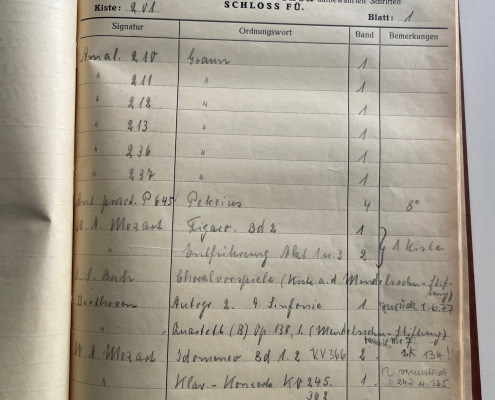 aufbewahrten Schriften
Kiste: 201. SCHLOSS FÜ. Blatt: 1
Signatur Ordnungswort Band Bemerkungen
Amal. 210 Graun 1
" 211 " 1
" 212 " 1
" 213 " 1
" 236 " 1
" 237 " 1
Ant. pract. P 645 Pekelius 4 8°
W. A. Mozart Figaro. Bd 2 1
" Entführung Akt 1 u. 3 2 } 1 Kiste
J. S. Bach Choralvorspiele (Kiste a. d. Mendelssohn-Stiftung)
Beethoven Autogr. 2. 9. Sinfonie 1 zurück 1.6.77
" Quartett (B) Op 130, 1 (Mendelssohn-Stiftung)
W. A. Mozart Idomeneo. Bd 1. 2 KV 366 2
" Klav-Konzerte KV 245. 1
362